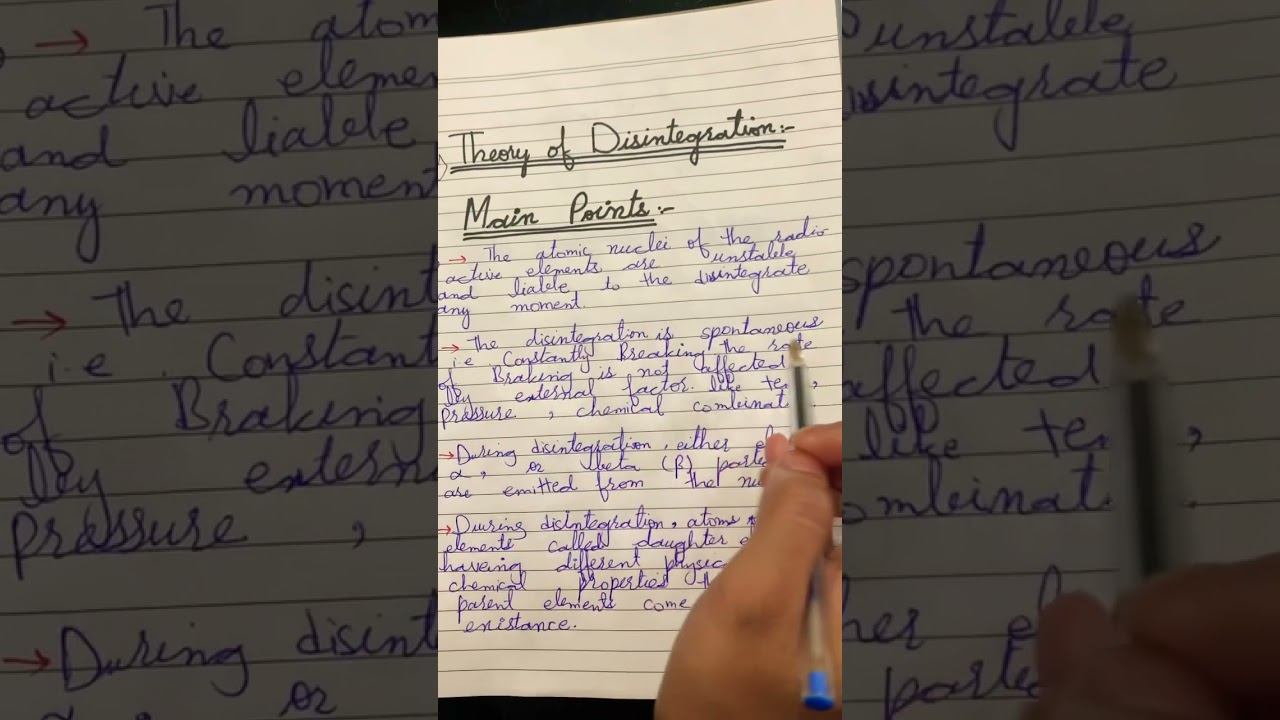 Theory of Disintegration:-
Main Points:-
→ The atomic nuclei of the radio
active elements are unstable
and liable to the disintegrate
any moment.
→ The disintegration is spontaneous
i.e Constantly Breaking the rate
of Braking is not affected
by external factor. like te
pressure, chemical combinat
→ During disintegration, either
α, or beta (β)
are emitted from the
→ During disintegration, atoms
elements called daughter
haveing different
chemical properties
parent elements come
enistance.